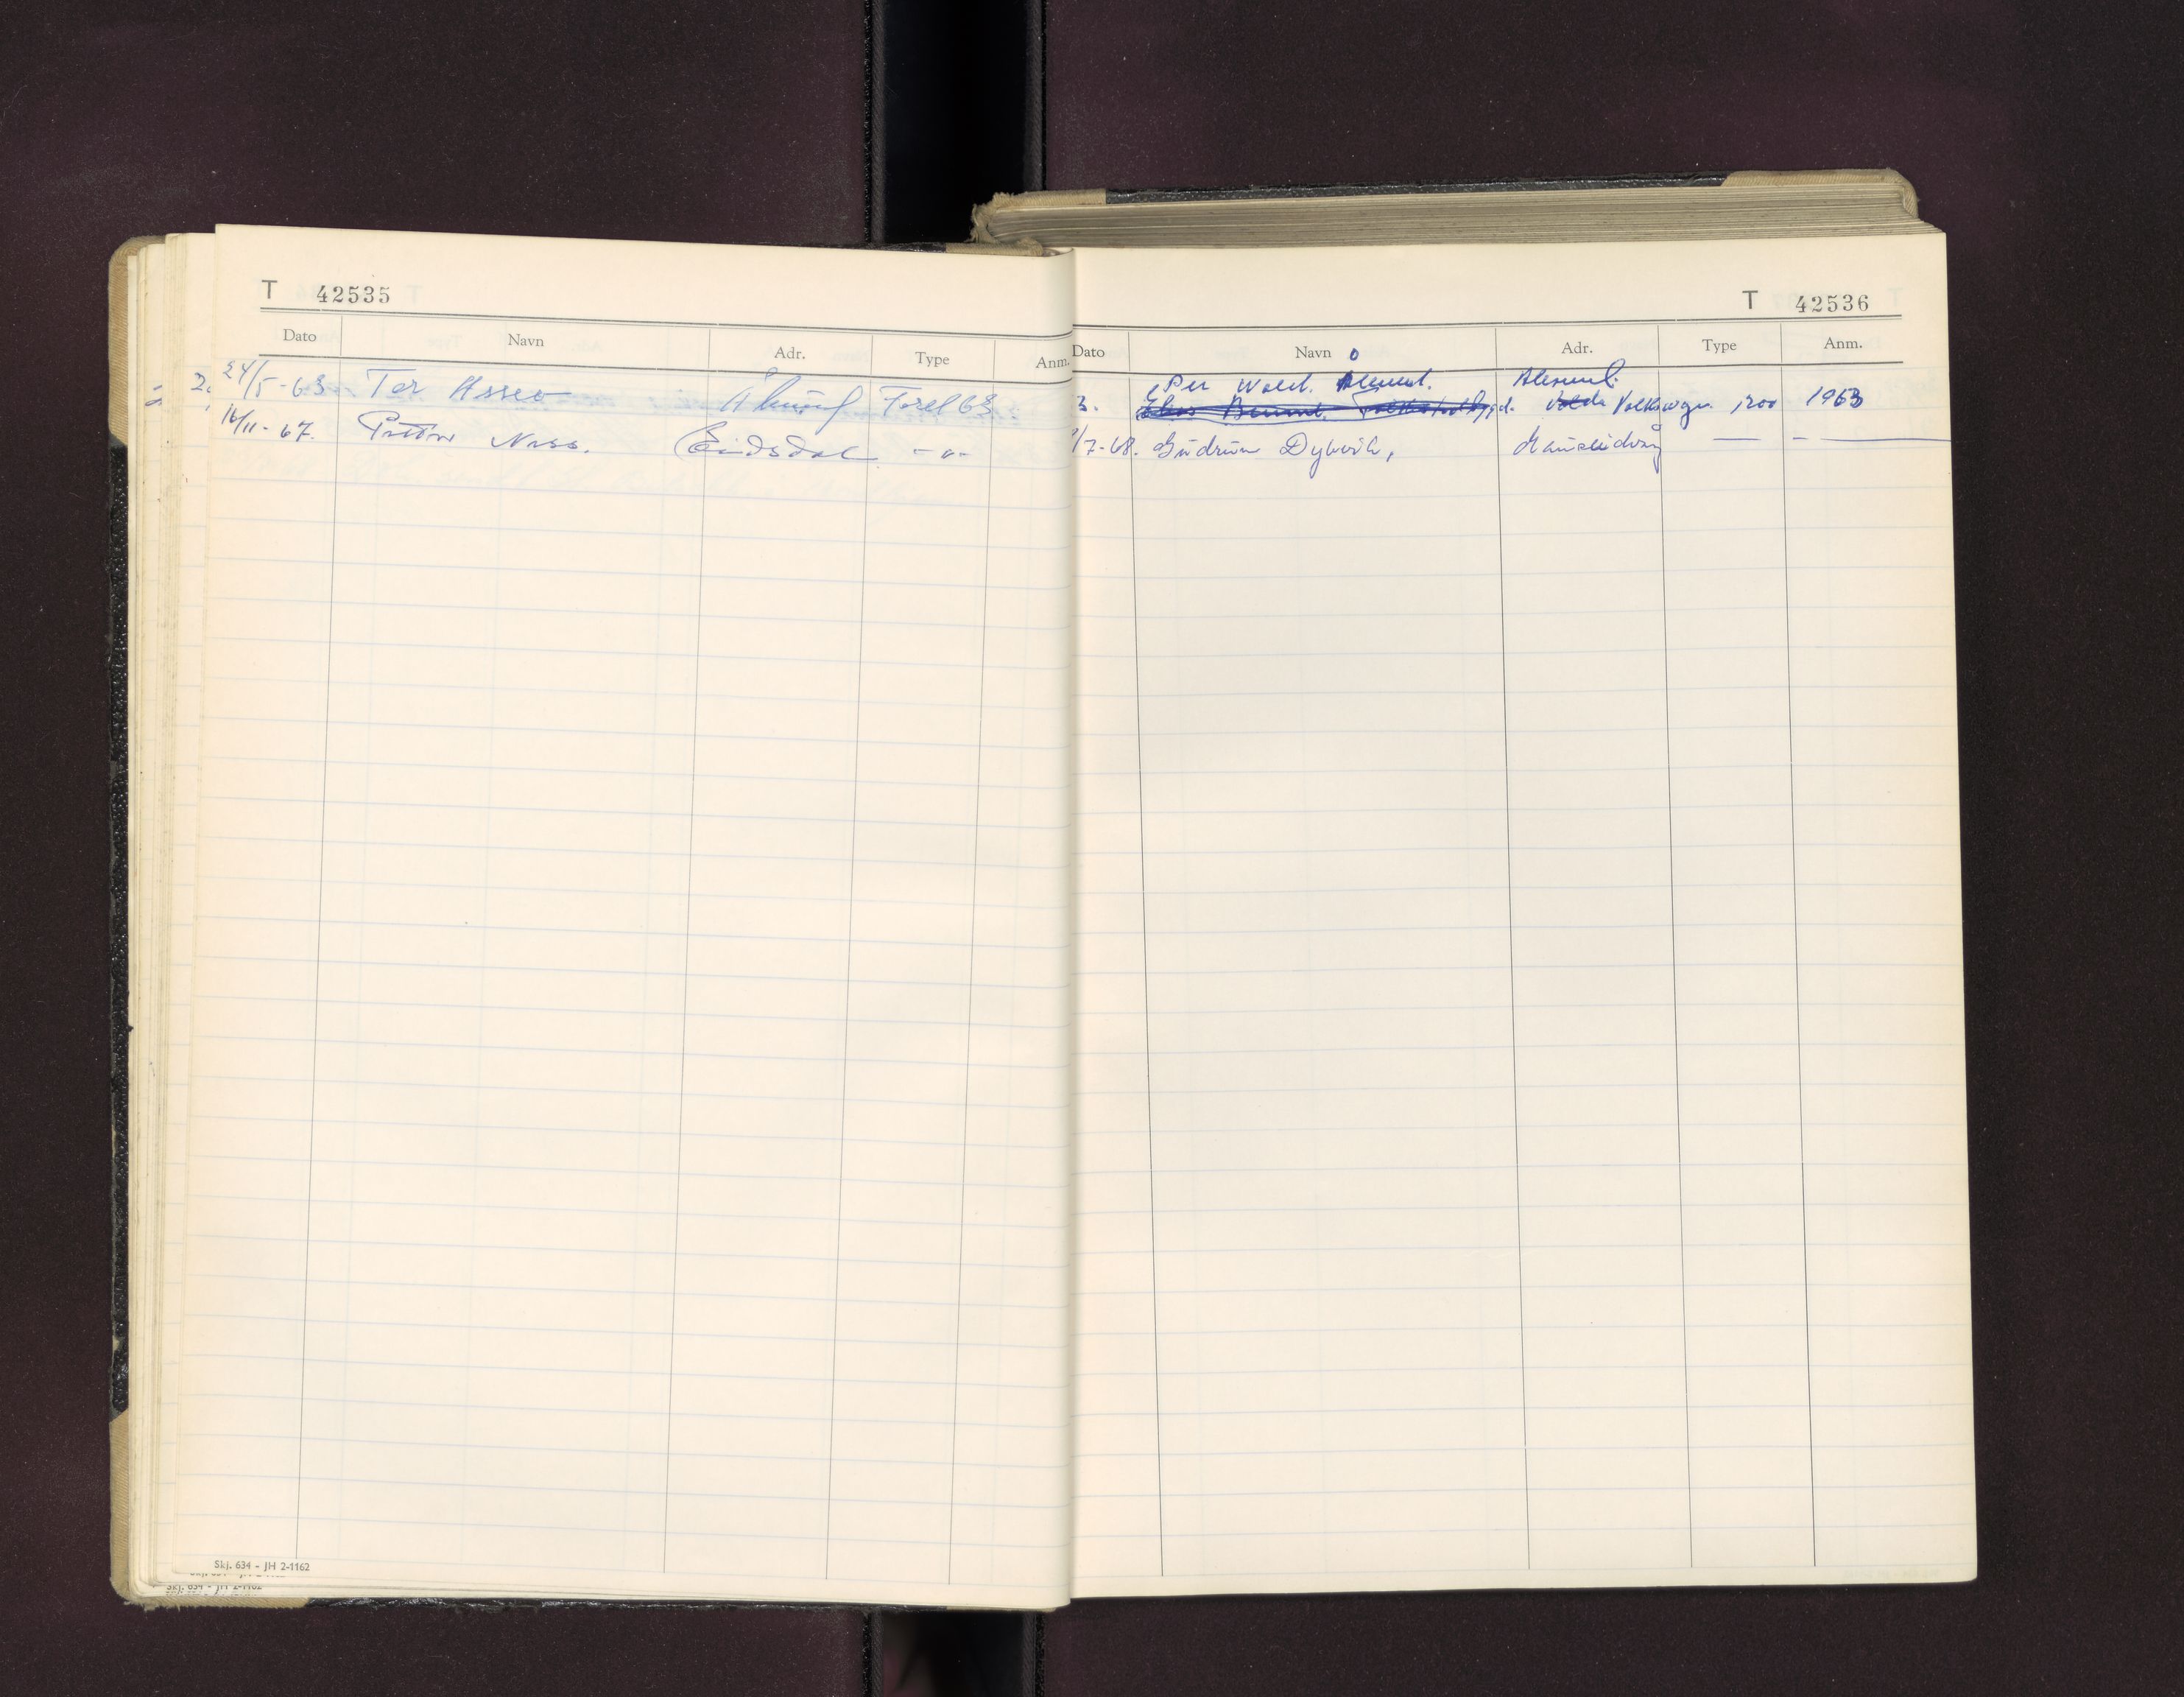 T 42535
Dato Navn Adr. Type Anm.
24/5-63 Tor Åsseo Forel 63
16/11-67. Petter Ness. Eidsdal -"-
Skj. 634 - JH 2-1162
T 42536
Dato Navn Adr. Type Anm.
Per Wold.
3. Volda Volkswgn. 1200 1963
/7-68. Gudrun Dybvik, Hareidvåg — - —